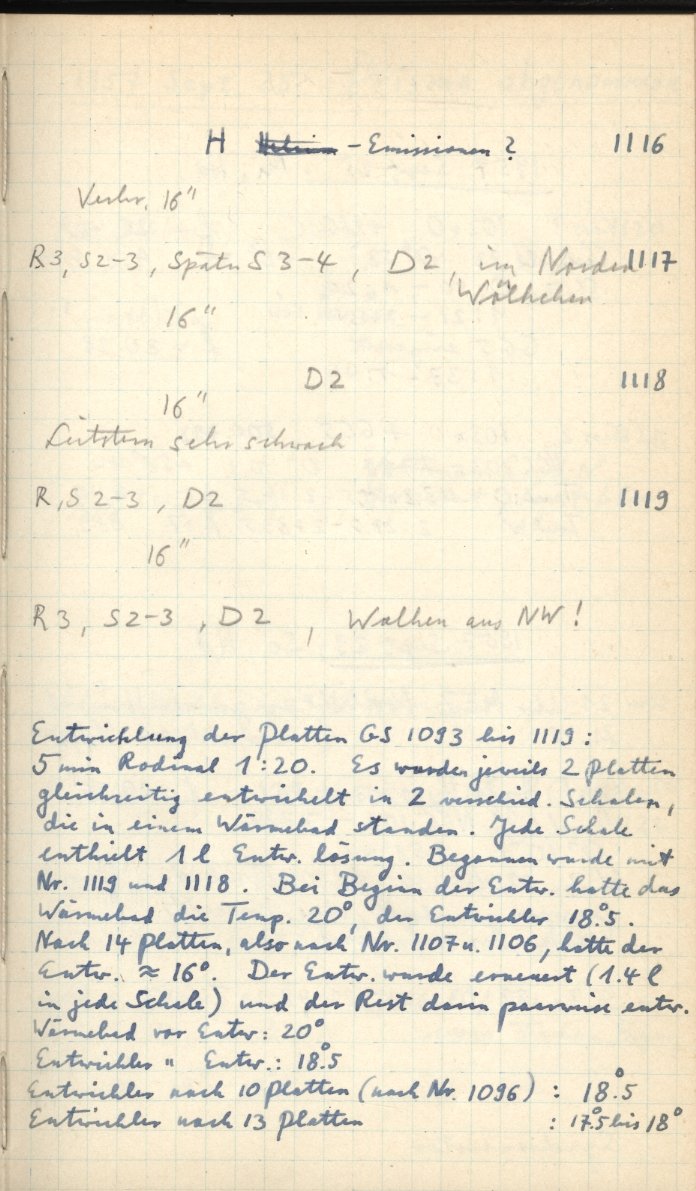 H Helium - Emissionen ? 1116
Verbr. 16"
R3, S2-3, später S 3-4, D2, im Norden 1117
Wölkchen
16"
D2 1118
16"
Leitstern sehr schwach
R, S 2-3, D2 1119
16"
R3, S2-3, D2, Wolken aus NW!
Entwicklung der Platten GS 1093 bis 1119:
5 min Rodinal 1:20. Es wurden jeweils 2 Platten
gleichzeitig entwickelt in 2 verschied. Schalen,
die in einem Wärmebad standen. Jede Schale
enthielt 1 l Entw. lösung. Begonnen wurde mit
Nr. 1119 und 1118. Bei Beginn der Entw. hatte das
Wärmebad die Temp. 20°, der Entwickler 18°.5.
Nach 14 Platten, also nach Nr. 1107 u. 1106, hatte der
Entw. ≈ 16°. Der Entw. wurde erneuert (1.4 l
in jede Schale) und der Rest darin paarweise entw.
Wärmebad vor Entw: 20°
Entwickler " Entw.: 18°.5
Entwickler nach 10 Platten (nach Nr. 1096) : 18°.5
Entwickler nach 13 Platten : 17°.5 bis 18°